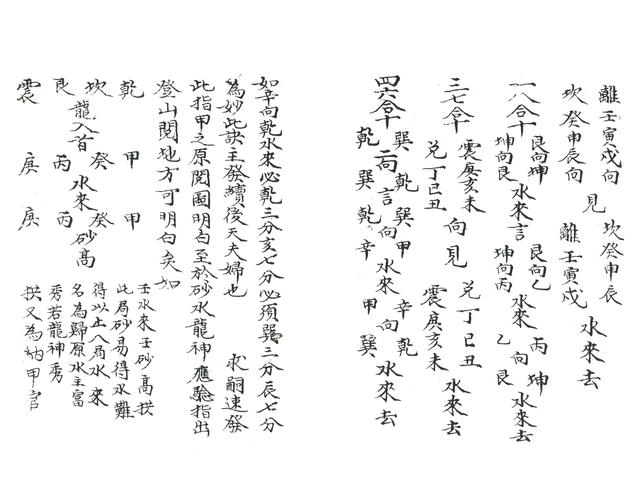 離壬寅戌向
坎癸申辰向 見 坎癸申辰 離壬寅戌 水來去
一八合十 艮向坤 坤向艮 水來言 艮向乙 坤向丙 水來 丙坤 乙向艮 水來去
三七合十 震庚亥未 兌丁巳丑 向見 兌丁巳丑 震庚亥未 水來去
四六合十 巽乾 乾巽 向言 巽甲 乾辛 向水來 辛乾 甲巽 向水來去
如辛向乾水來必乾三分亥七分必須巽三分辰七分
為妙此訣主發續後天夫婦也 求嗣速發
此指甲之原閱圖明白至於砂水龍神應驗指出
登山閱地方可明白矣如
乾 甲 甲
坎 癸 癸
龍入首 水來 砂高
艮 丙 丙
震 庚 庚
壬水來壬砂高拱
此局砂易得水難
得以上八局水來
名為歸原水主富
秀若龍神秀
拱又為納甲官